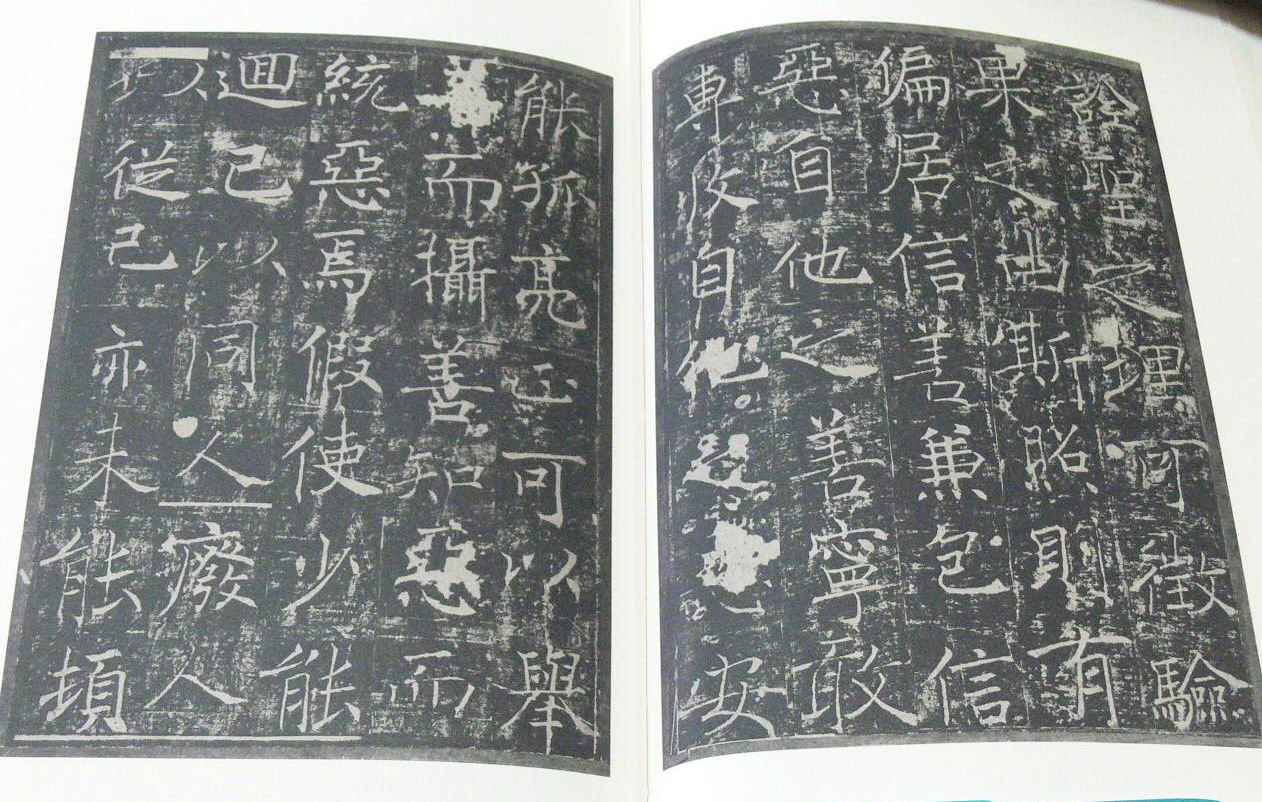 詮聖之理可徵驗
果之由斯照則有
偏居信善兼包信
惡自他之善寧敢
專及自他安
能孤亮正可以舉
而攝善知惡而
統惡焉假使少能
迴己以同人廢人
以從己亦未能頓